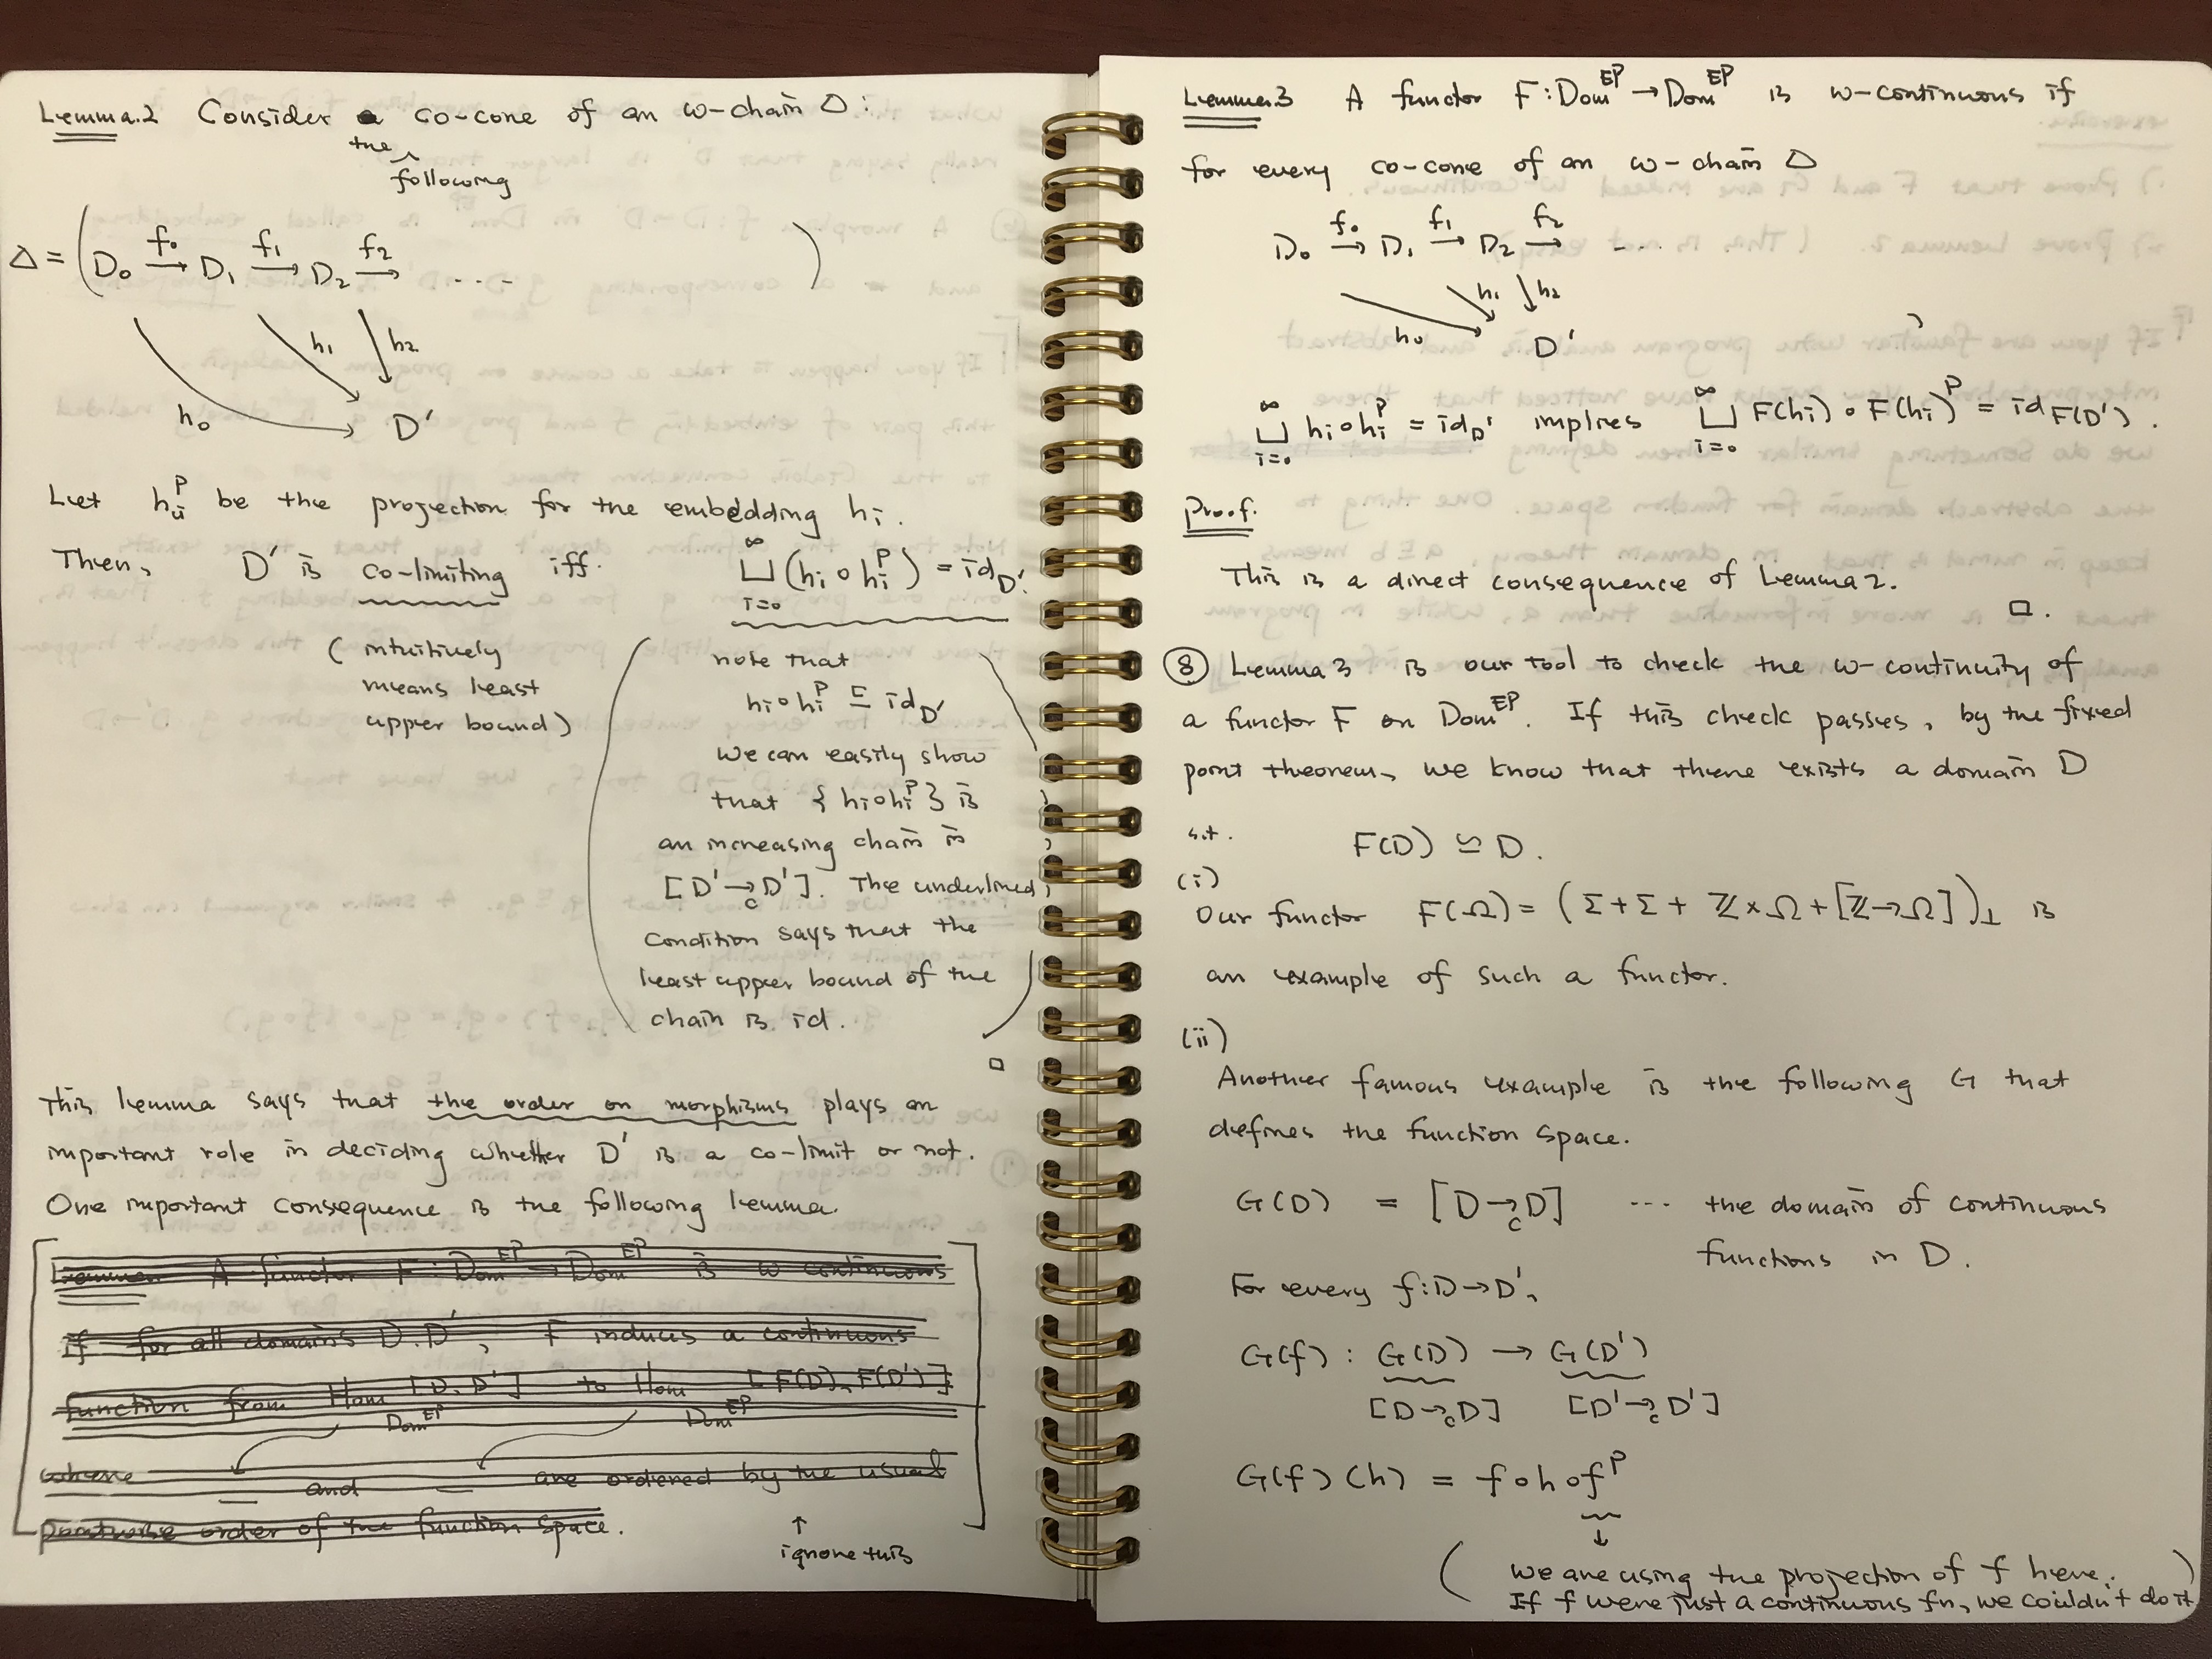 Lemma.2 Consider a co-cone of an ω-chain Δ:
the following
Δ = ( D₀ →f₀ D₁ →f₁ D₂ →f₂ .... )
h₀ h₁ h₂
D'
Let hᵢᴾ be the projection for the embedding hᵢ.
Then, D' is co-limiting iff. ⊔_{i=0}^∞ (hᵢ∘hᵢᴾ) = id_D'.
( intuitively
means least
upper bound )
( note that
hᵢ∘hᵢᴾ ⊑ id_D'
we can easily show
that { hᵢ∘hᵢᴾ } is
an increasing chain in
[D' →c D']. The underlined
condition says that the
least upper bound of the
chain is id. )
□
This lemma says that the order on morphisms plays an
important role in deciding whether D' is a co-limit or not.
One important consequence is the following lemma.
Lemma A functor F: Dom^EP → Dom^EP is ω continuous
if for all domains D, D', F induces a continuous
function from Hom_{Dom^EP} [D, D'] to Hom_{Dom^EP} [F(D), F(D')]
where __ and __ are ordered by the usual
pointwise order of the function space.
↑
ignore this
Lemma3 A functor F: Dom^EP → Dom^EP is ω-continuous if
for every co-cone of an ω-chain Δ
D₀ →f₀ D₁ →f₁ D₂ →f₂ ....
h₀ h₁ h₂
D' ,
⊔_{i=0}^∞ hᵢ∘hᵢᴾ = id_D' implies ⊔_{i=0}^∞ F(hᵢ) ∘ F(hᵢ)ᴾ = id_F(D').
Proof.
This is a direct consequence of Lemma 2.
□.
⑧ Lemma 3 is our tool to check the ω-continuity of
a functor F on Dom^EP. If this check passes, by the fixed
point theorem, we know that there exists a domain D
s.t. F(D) ≅ D.
(i)
Our functor F(Ω) = (Σ+Σ+ ℤ×Ω + [ℤ→Ω])⊥ is
an example of such a functor.
(ii)
Another famous example is the following G that
defines the function space.
G(D) = [D →c D] ... the domain of continuous
functions in D.
For every f: D → D',
G(f) : G(D) → G(D')
[D →c D] [D' →c D']
G(f)(h) = f∘h∘fᴾ
↓
( we are using the projection of f here.
If f were just a continuous fn, we couldn't do it )